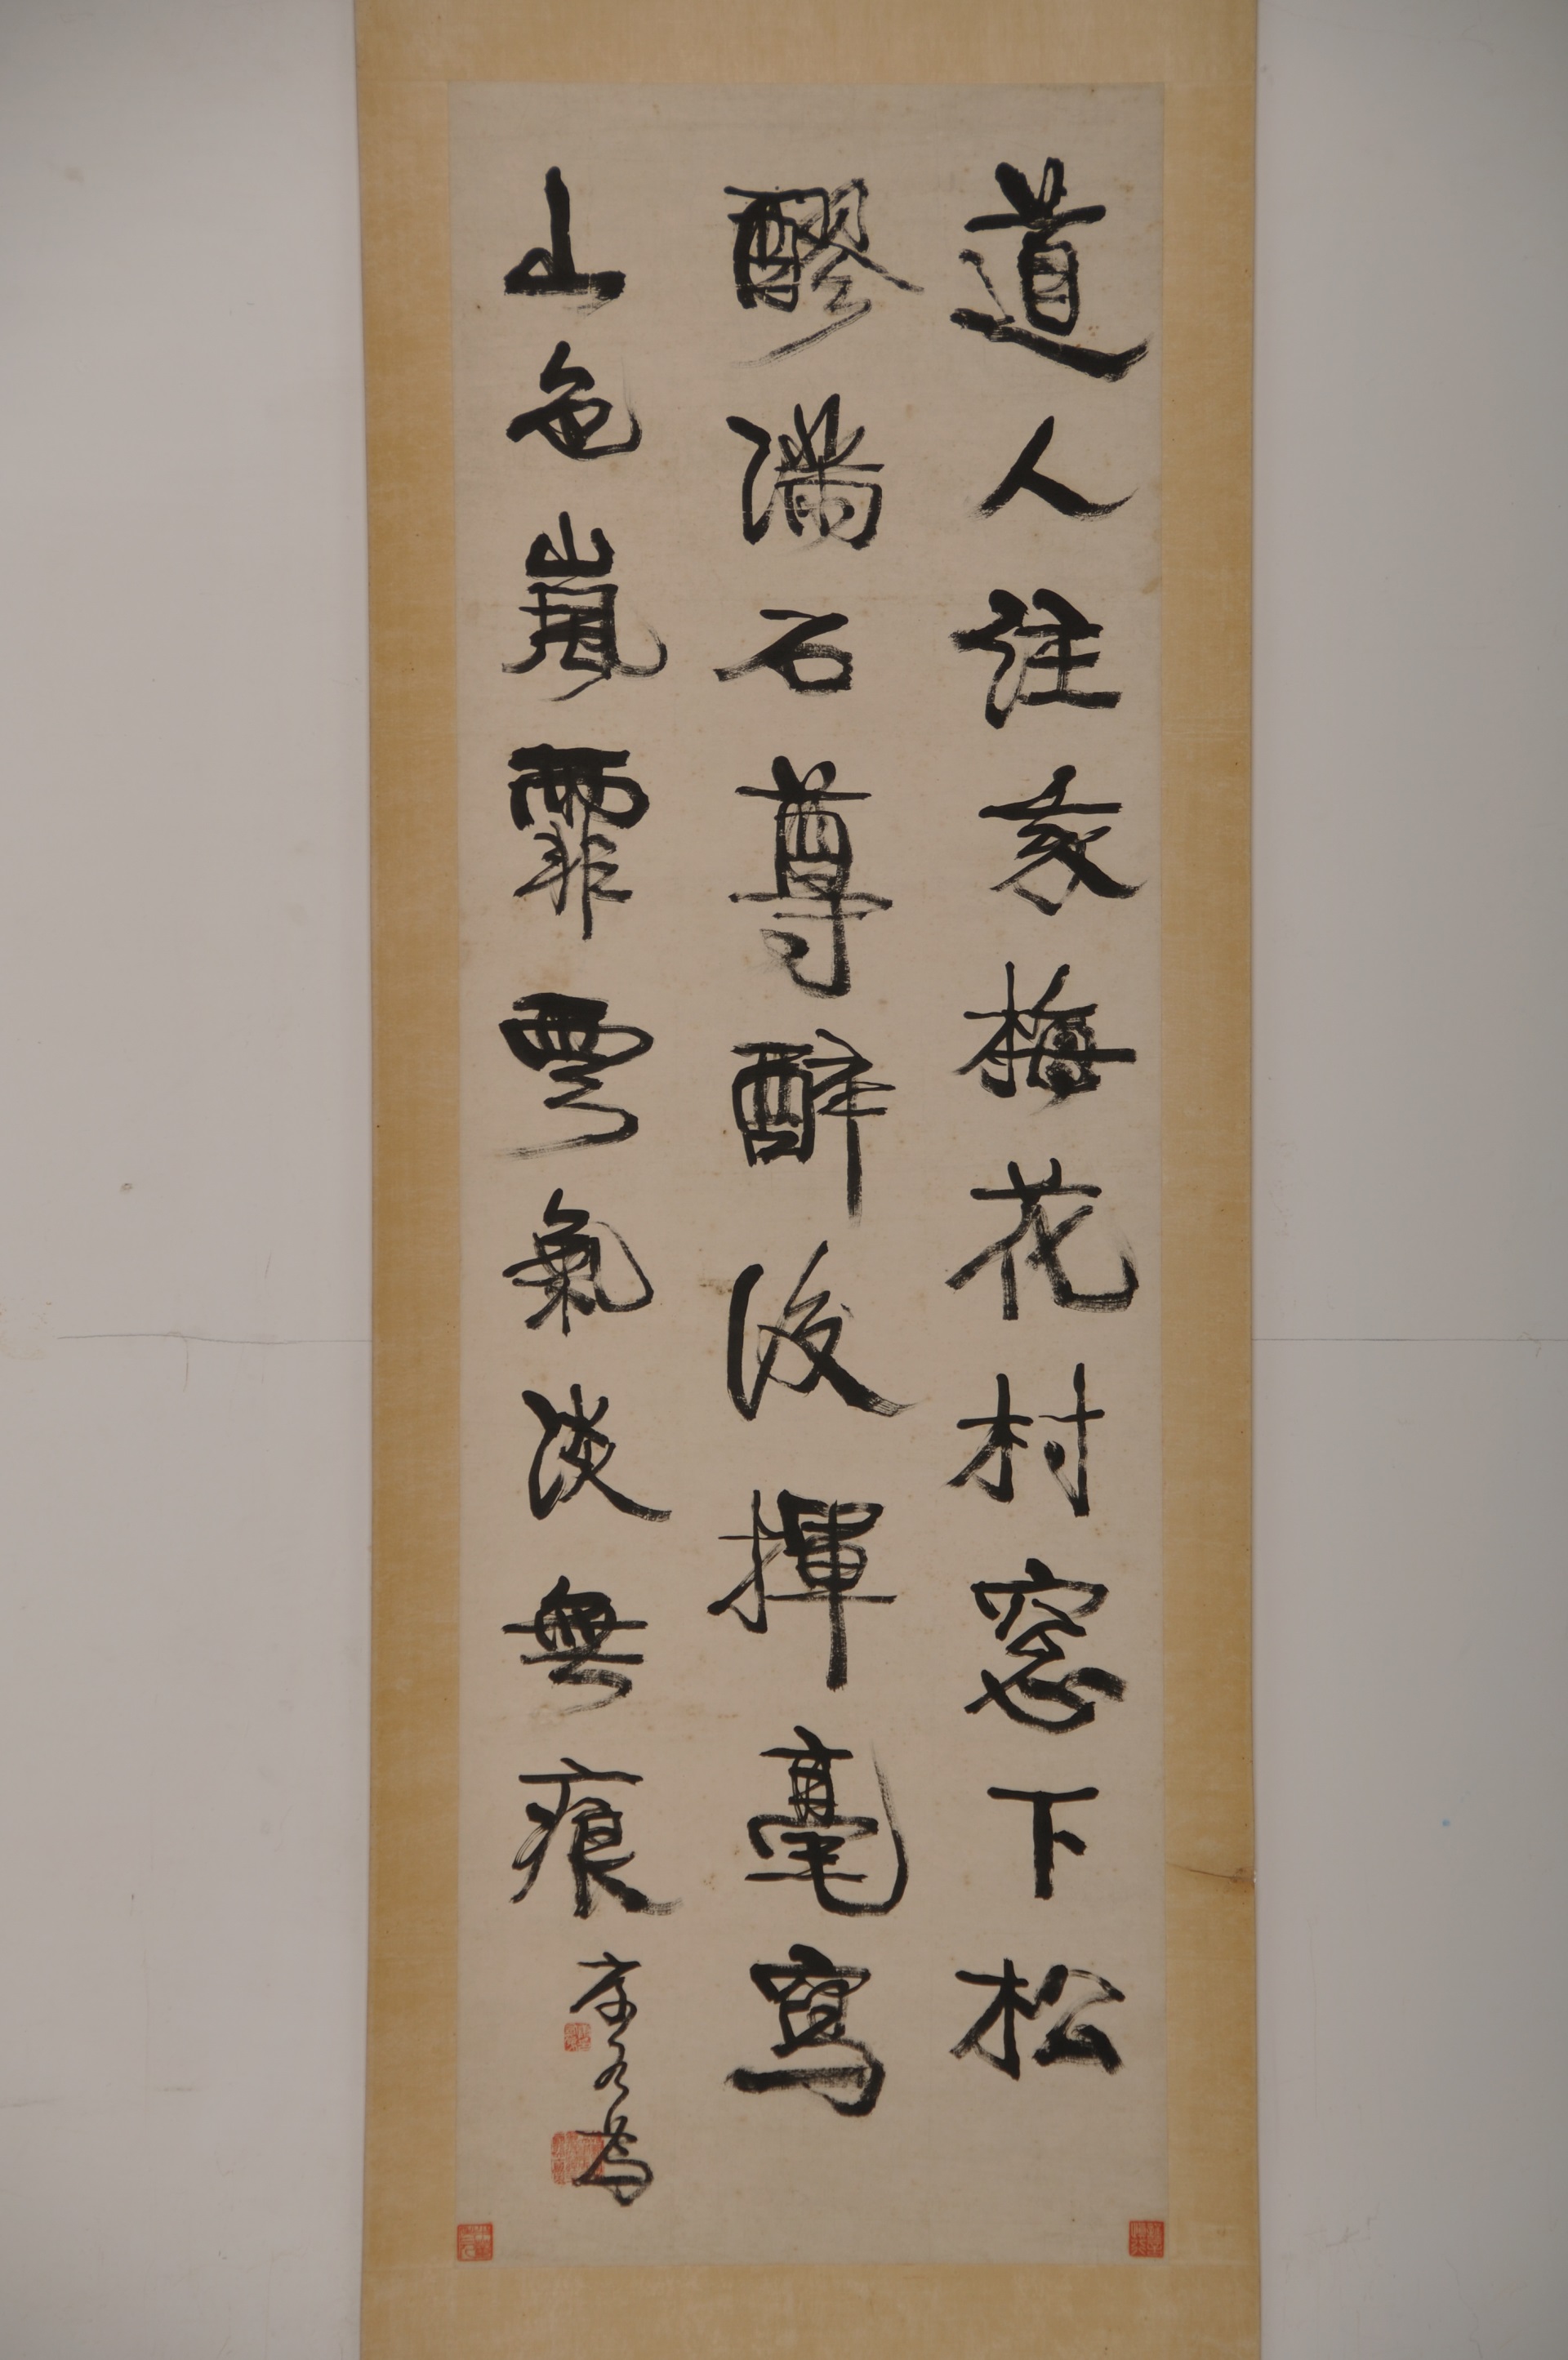 道人註亥梅花村窓下松
醪滿石尊醉後揮毫寫
山色嵐霏雲氣淡無痕
康有為